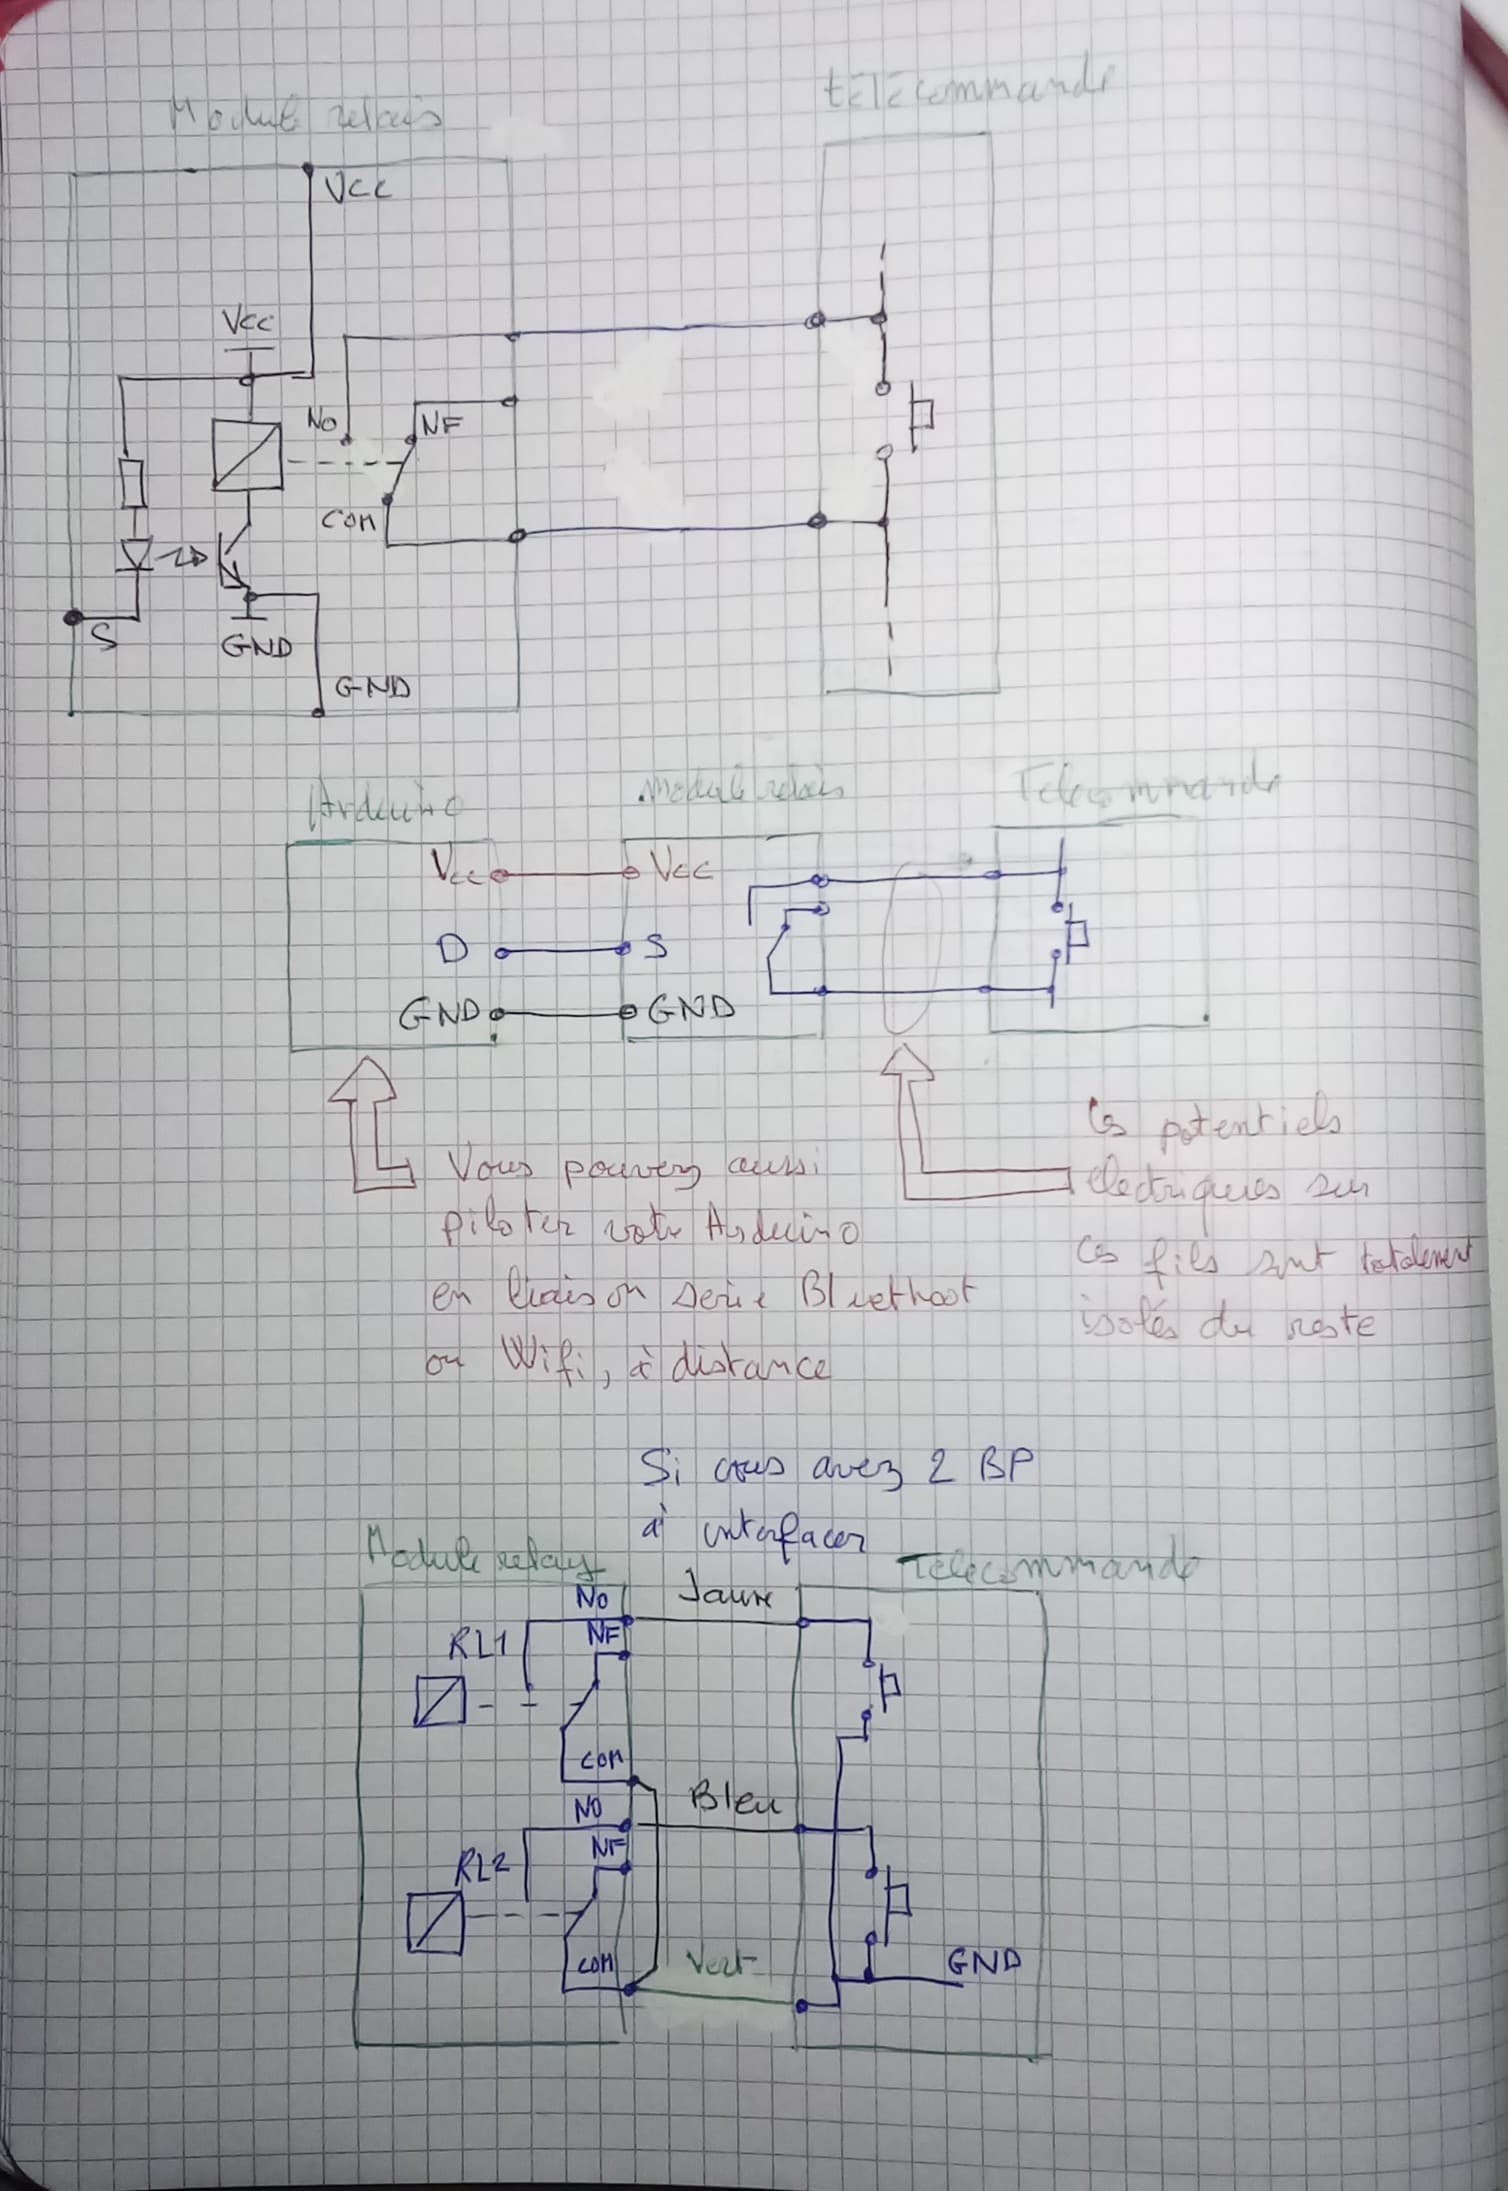 Module relais
télécommande
VCC
Vcc
No
NF
COM
S
GND
GND
Arduino
Module relais
Télécommande
Vcc
Vcc
D
S
GND
GND
Vous pouvez aussi
piloter votre Arduino
en liaison série Bluethoot
ou Wifi, à distance
Ces potentiels
électriques sur
ces fils sont totalement
isolés du reste
Si vous avez 2 BP
à interfacer
Module relay
Télécommande
No
Jaune
NF
RL1
COM
Bleu
NO
NF
RL2
COM
Vert
GND